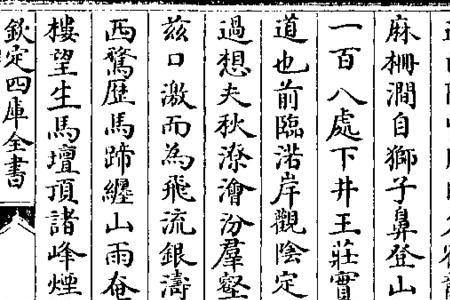 麻柵澗自獅子鼻登山
一百八處下井王莊實
道也前臨涽岸觀陰定
過想夫秋潦澮汾羣壑
兹口激而為飛流銀濤
西鶩歴馬蹄纏山雨奄
樓望生馬壇頂諸峰煙
欽定四庫全書